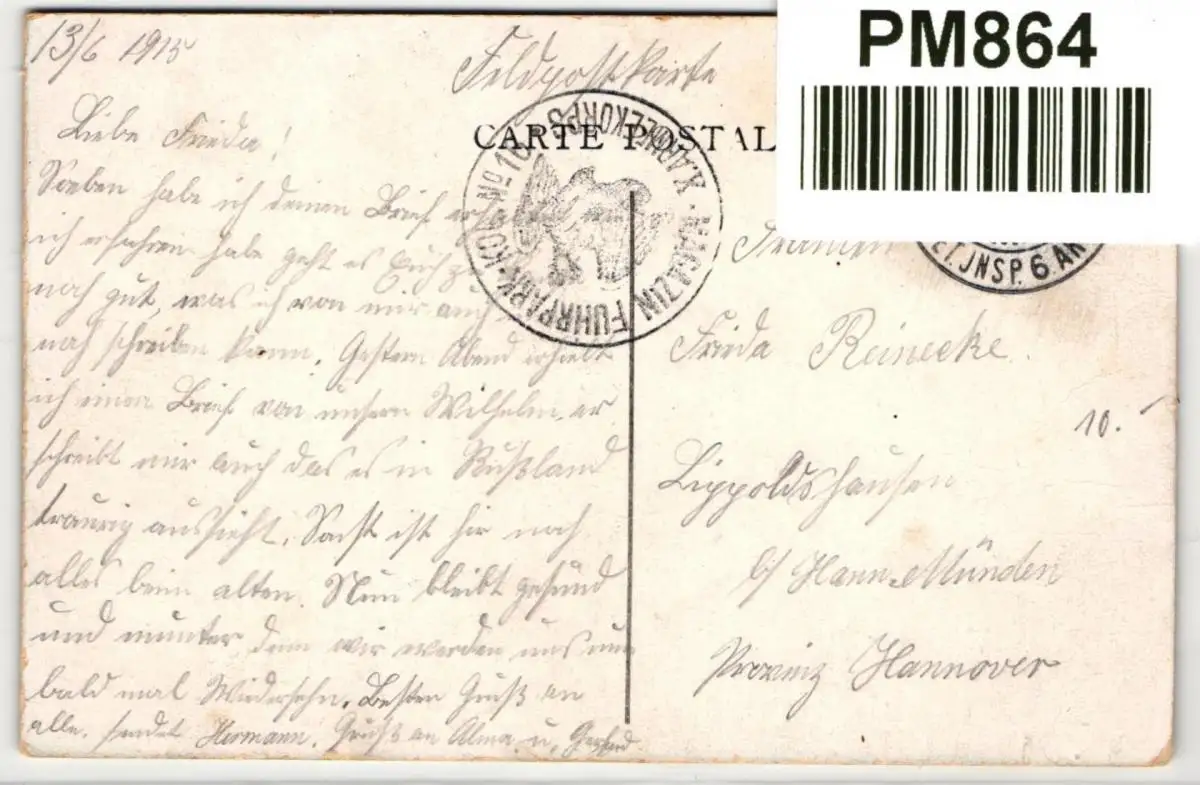 PM864
13/6 1915
Feldpostkarte
CARTE POSTAL
X. ARMEEKORPS · MAGAZIN FUHRPARK-KOL. No 10
ET. JNSP. 6 AR
Liebe Frieda!
Soeben habe ich deinen Brief erhalten wie
ich erfahren habe geht es Euch
noch gut, was ich von mir auch
noch schreiben kann. Gestern Abend erhielt
ich einen Brief von unsern Wilhelm, er
schreibt mir auch das es in Rußland
traurig aussieht. Sonst ist hir noch
alles beim alten. Nun bleibt gesund
und munter denn wir werden uns nun
bald mal Wiedersehn. Besten Gruß an
alle, sendet Hermann. Gruß an Alma u.
Fräulein
Frieda Reinecke.
10.
Lippoldshausen
b/ Hann. Münden
Provinz Hannover